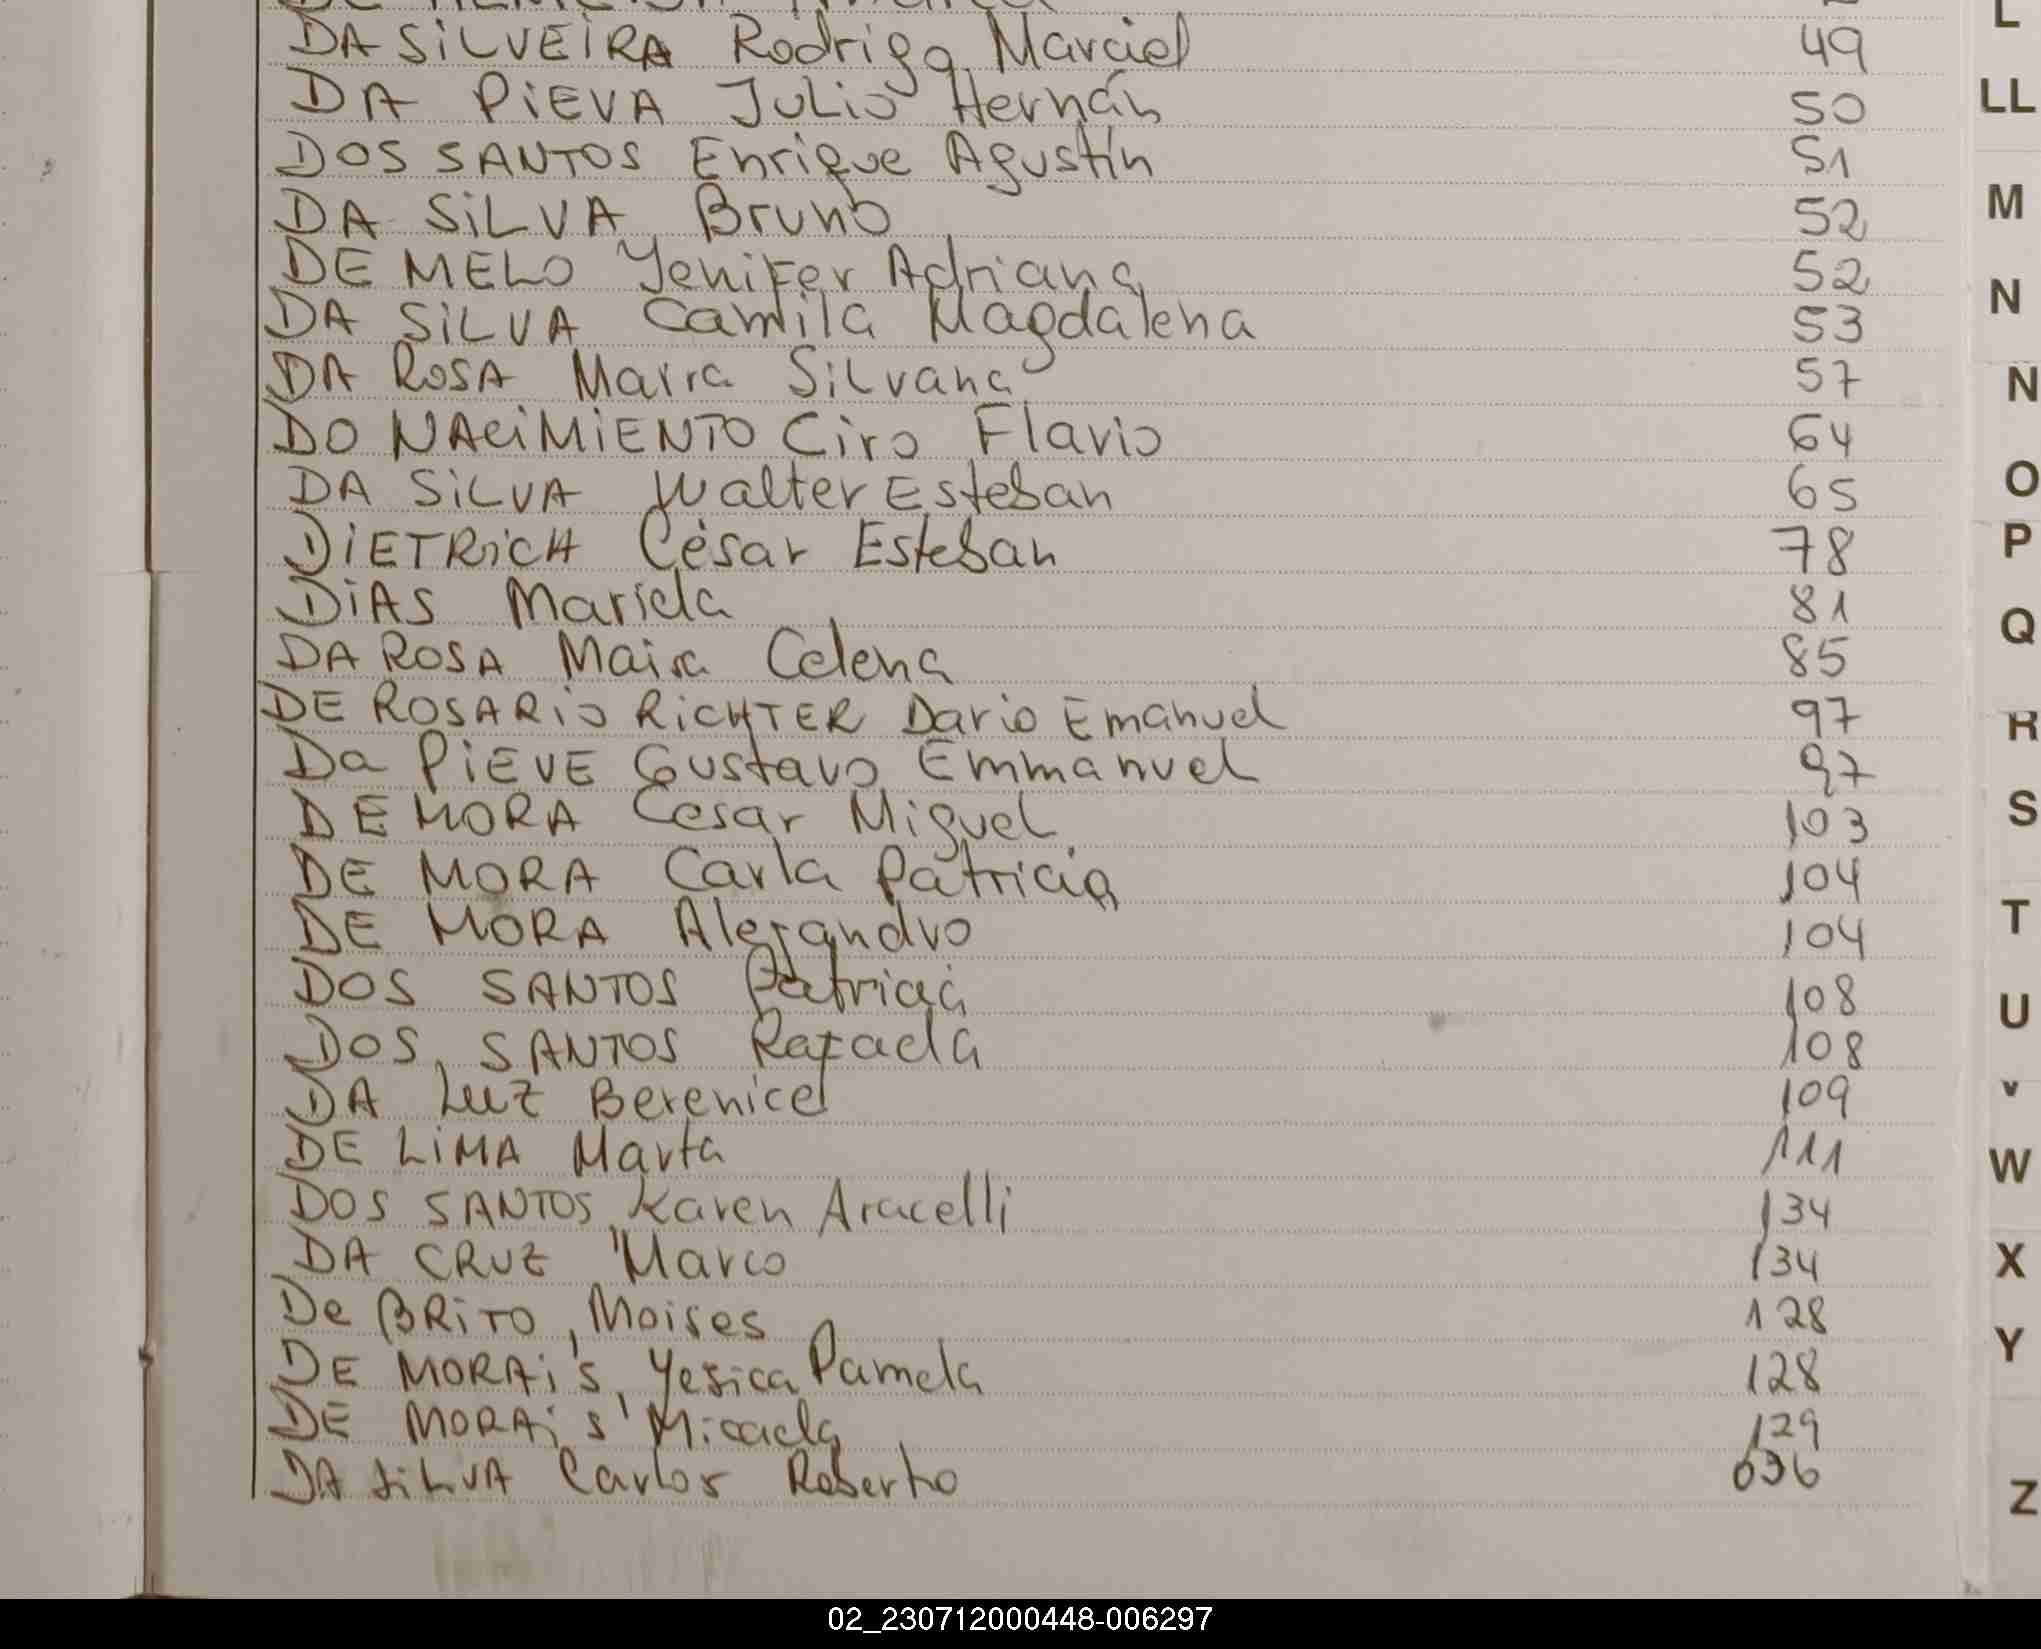 DA SiLVEiRA Rodrigo Marciel 49
DA PiEVA Julio Hernán 50
DOS SANTOS Enrique Agustín 51
DA SiLVA Bruno 52
DE MELO Yenifer Adriana 52
DA SiLVA Camila Magdalena 53
DA ROSA Silvana 57
DO NACiMiENTO Ciro Flavio 64
DA SiLVA Walter Esteban 65
DiETRiCH César Esteban 78
DiAS Mariela 81
DA ROSA Celena 85
DE ROSARiO RiCHTER Dario Emanuel 97
Da PiEVE Gustavo Emmanuel 97
DE MORA Cesar Miguel 103
DE MORA Carla Patricia 104
DE MORA Alejandro 104
DOS SANTOS Patricia 108
DOS SANTOS Rafaela 108
DA LUZ Berenice 109
DE LiMA Marta 111
DOS SANTOS, Karen Aracelli 134
DA CRUZ Marco 134
De BRiTO, Moises 128
DE MORAiS, Yesica Pamela 128
DE MORAiS Micaela 129
DA SiLVA Carlos Roberto 036
L
LL
M
N
N
O
P
Q
R
S
T
U
V
W
X
Y
Z
02_230712000448-006297